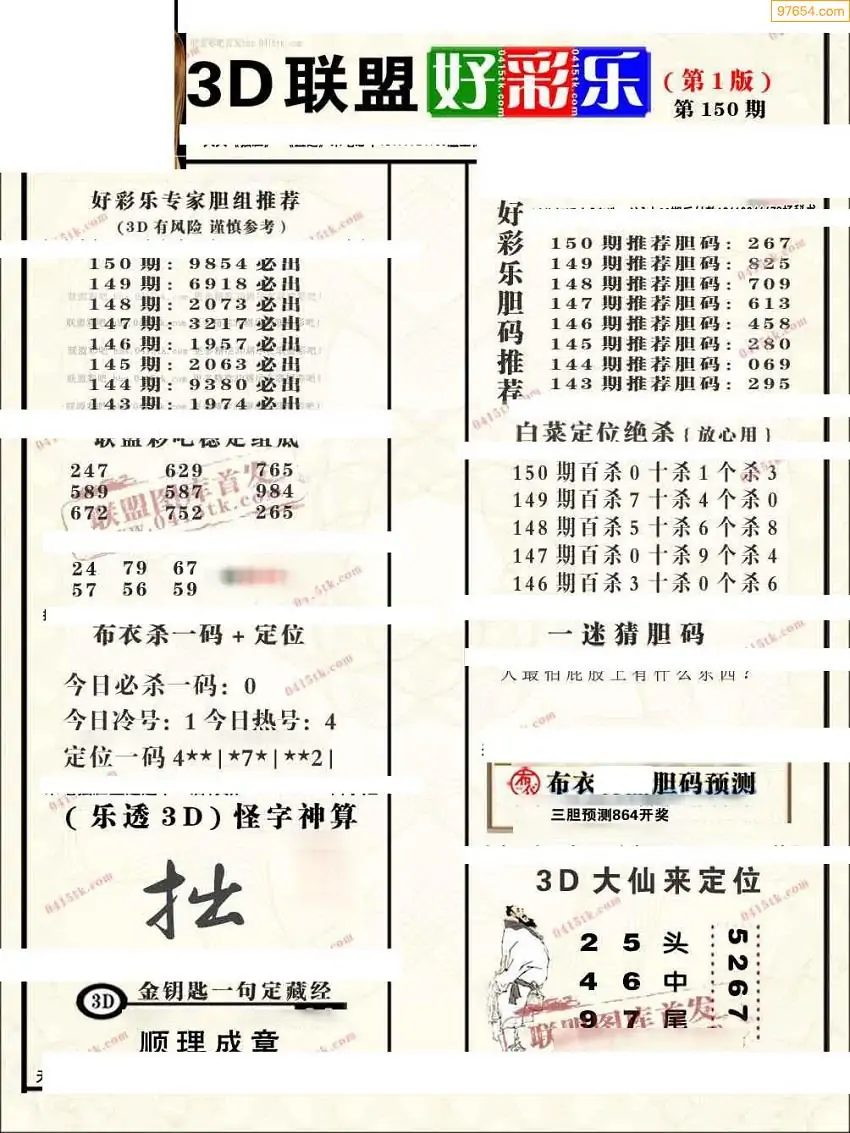 97654.com
3D联盟好彩乐
(第1版)
第150期
好彩乐专家胆组推荐
(3D有风险 谨慎参考)
150期: 9854必出
149期: 6918必出
148期: 2073必出
147期: 3217必出
146期: 1957必出
145期: 2063必出
144期: 9380必出
143期: 1974必出
联盟彩吧稳定组底
247 629 765
589 587 984
672 752 265
联盟图库首发
www.0415tk.com
24 79 67
57 56 59
布衣杀一码+定位
今日必杀一码: 0
今日冷号: 1 今日热号: 4
定位一码 4**|*7*|**2|
(乐透3D)怪字神算
拙
3D 金钥匙一句定藏经
顺理成章
好彩乐胆码推荐
150期推荐胆码: 267
149期推荐胆码: 825
148期推荐胆码: 709
147期推荐胆码: 613
146期推荐胆码: 458
145期推荐胆码: 280
144期推荐胆码: 069
143期推荐胆码: 295
白菜定位绝杀{放心用}
150期百杀0十杀1个杀3
149期百杀7十杀4个杀0
148期百杀5十杀6个杀8
147期百杀0十杀9个杀4
146期百杀3十杀0个杀6
一迷猜胆码
人最怕屁股上有什么东西?
布衣 胆码预测
三胆预测864开奖
3D大仙来定位
2 5 头
4 6 中
9 7 尾
5267
联盟图库首发
0415tk.com